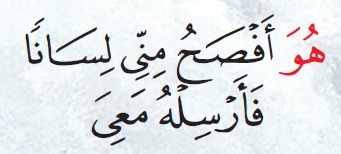 هُوَ أَفْصَحُ مِنِّي لِسَانًا
فَأَرْسِلْهُ مَعِيَ